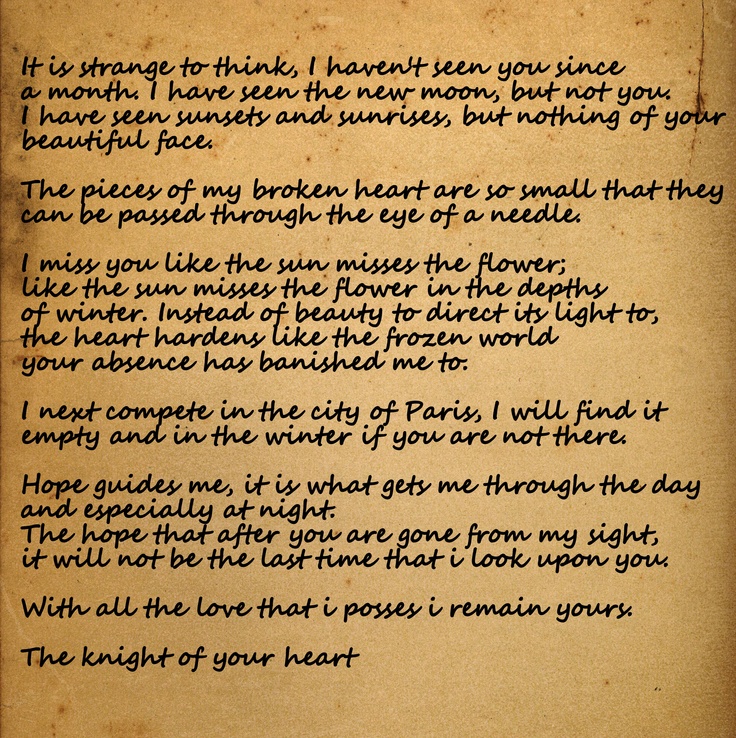 It is strange to think, I haven't seen you since
a month. I have seen the new moon, but not you.
I have seen sunsets and sunrises, but nothing of your
beautiful face.
The pieces of my broken heart are so small that they
can be passed through the eye of a needle.
I miss you like the sun misses the flower;
like the sun misses the flower in the depths
of winter. Instead of beauty to direct its light to,
the heart hardens like the frozen world
your absence has banished me to.
I next compete in the city of Paris, I will find it
empty and in the winter if you are not there.
Hope guides me, it is what gets me through the day
and especially at night.
The hope that after you are gone from my sight,
it will not be the last time that i look upon you.
With all the love that i posses i remain yours.
The knight of your heart